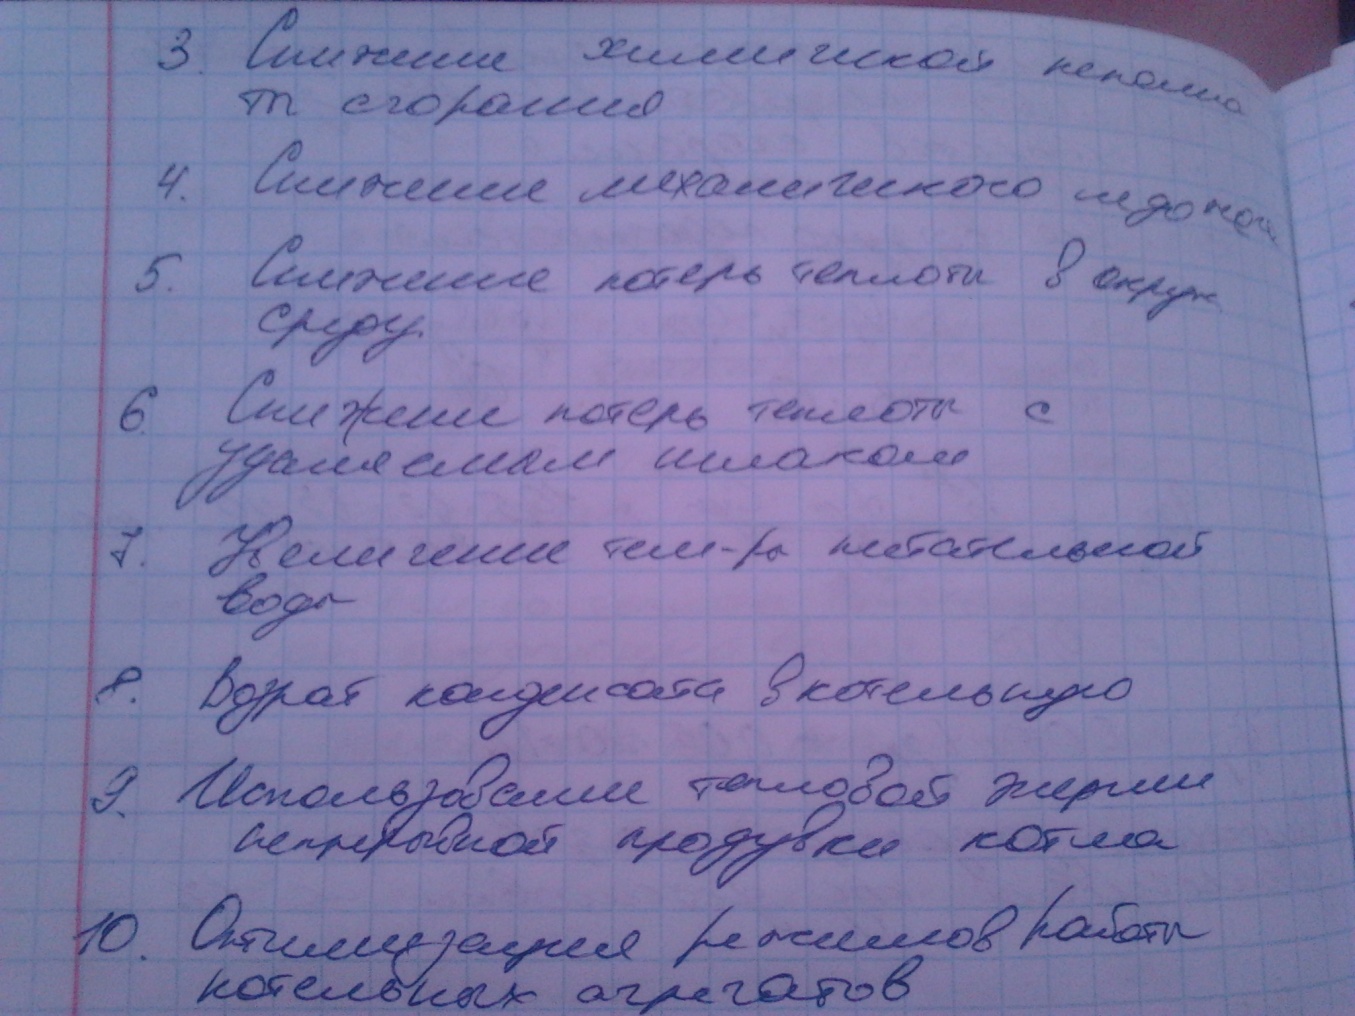 3. Снижение химической неполно
ты сгорания
4. Снижение механического недожог
5. Снижение потерь теплоты в окруж
среду.
6. Снижение потерь теплоты с
удаляемым шлаком
7. Увеличение тем-ры питательной
воды
8. Возрат конденсата в котельную
9. Использование тепловой энергии
непрерывной продувки котла
10. Оптимизация режимов работы
котельных агрегатов